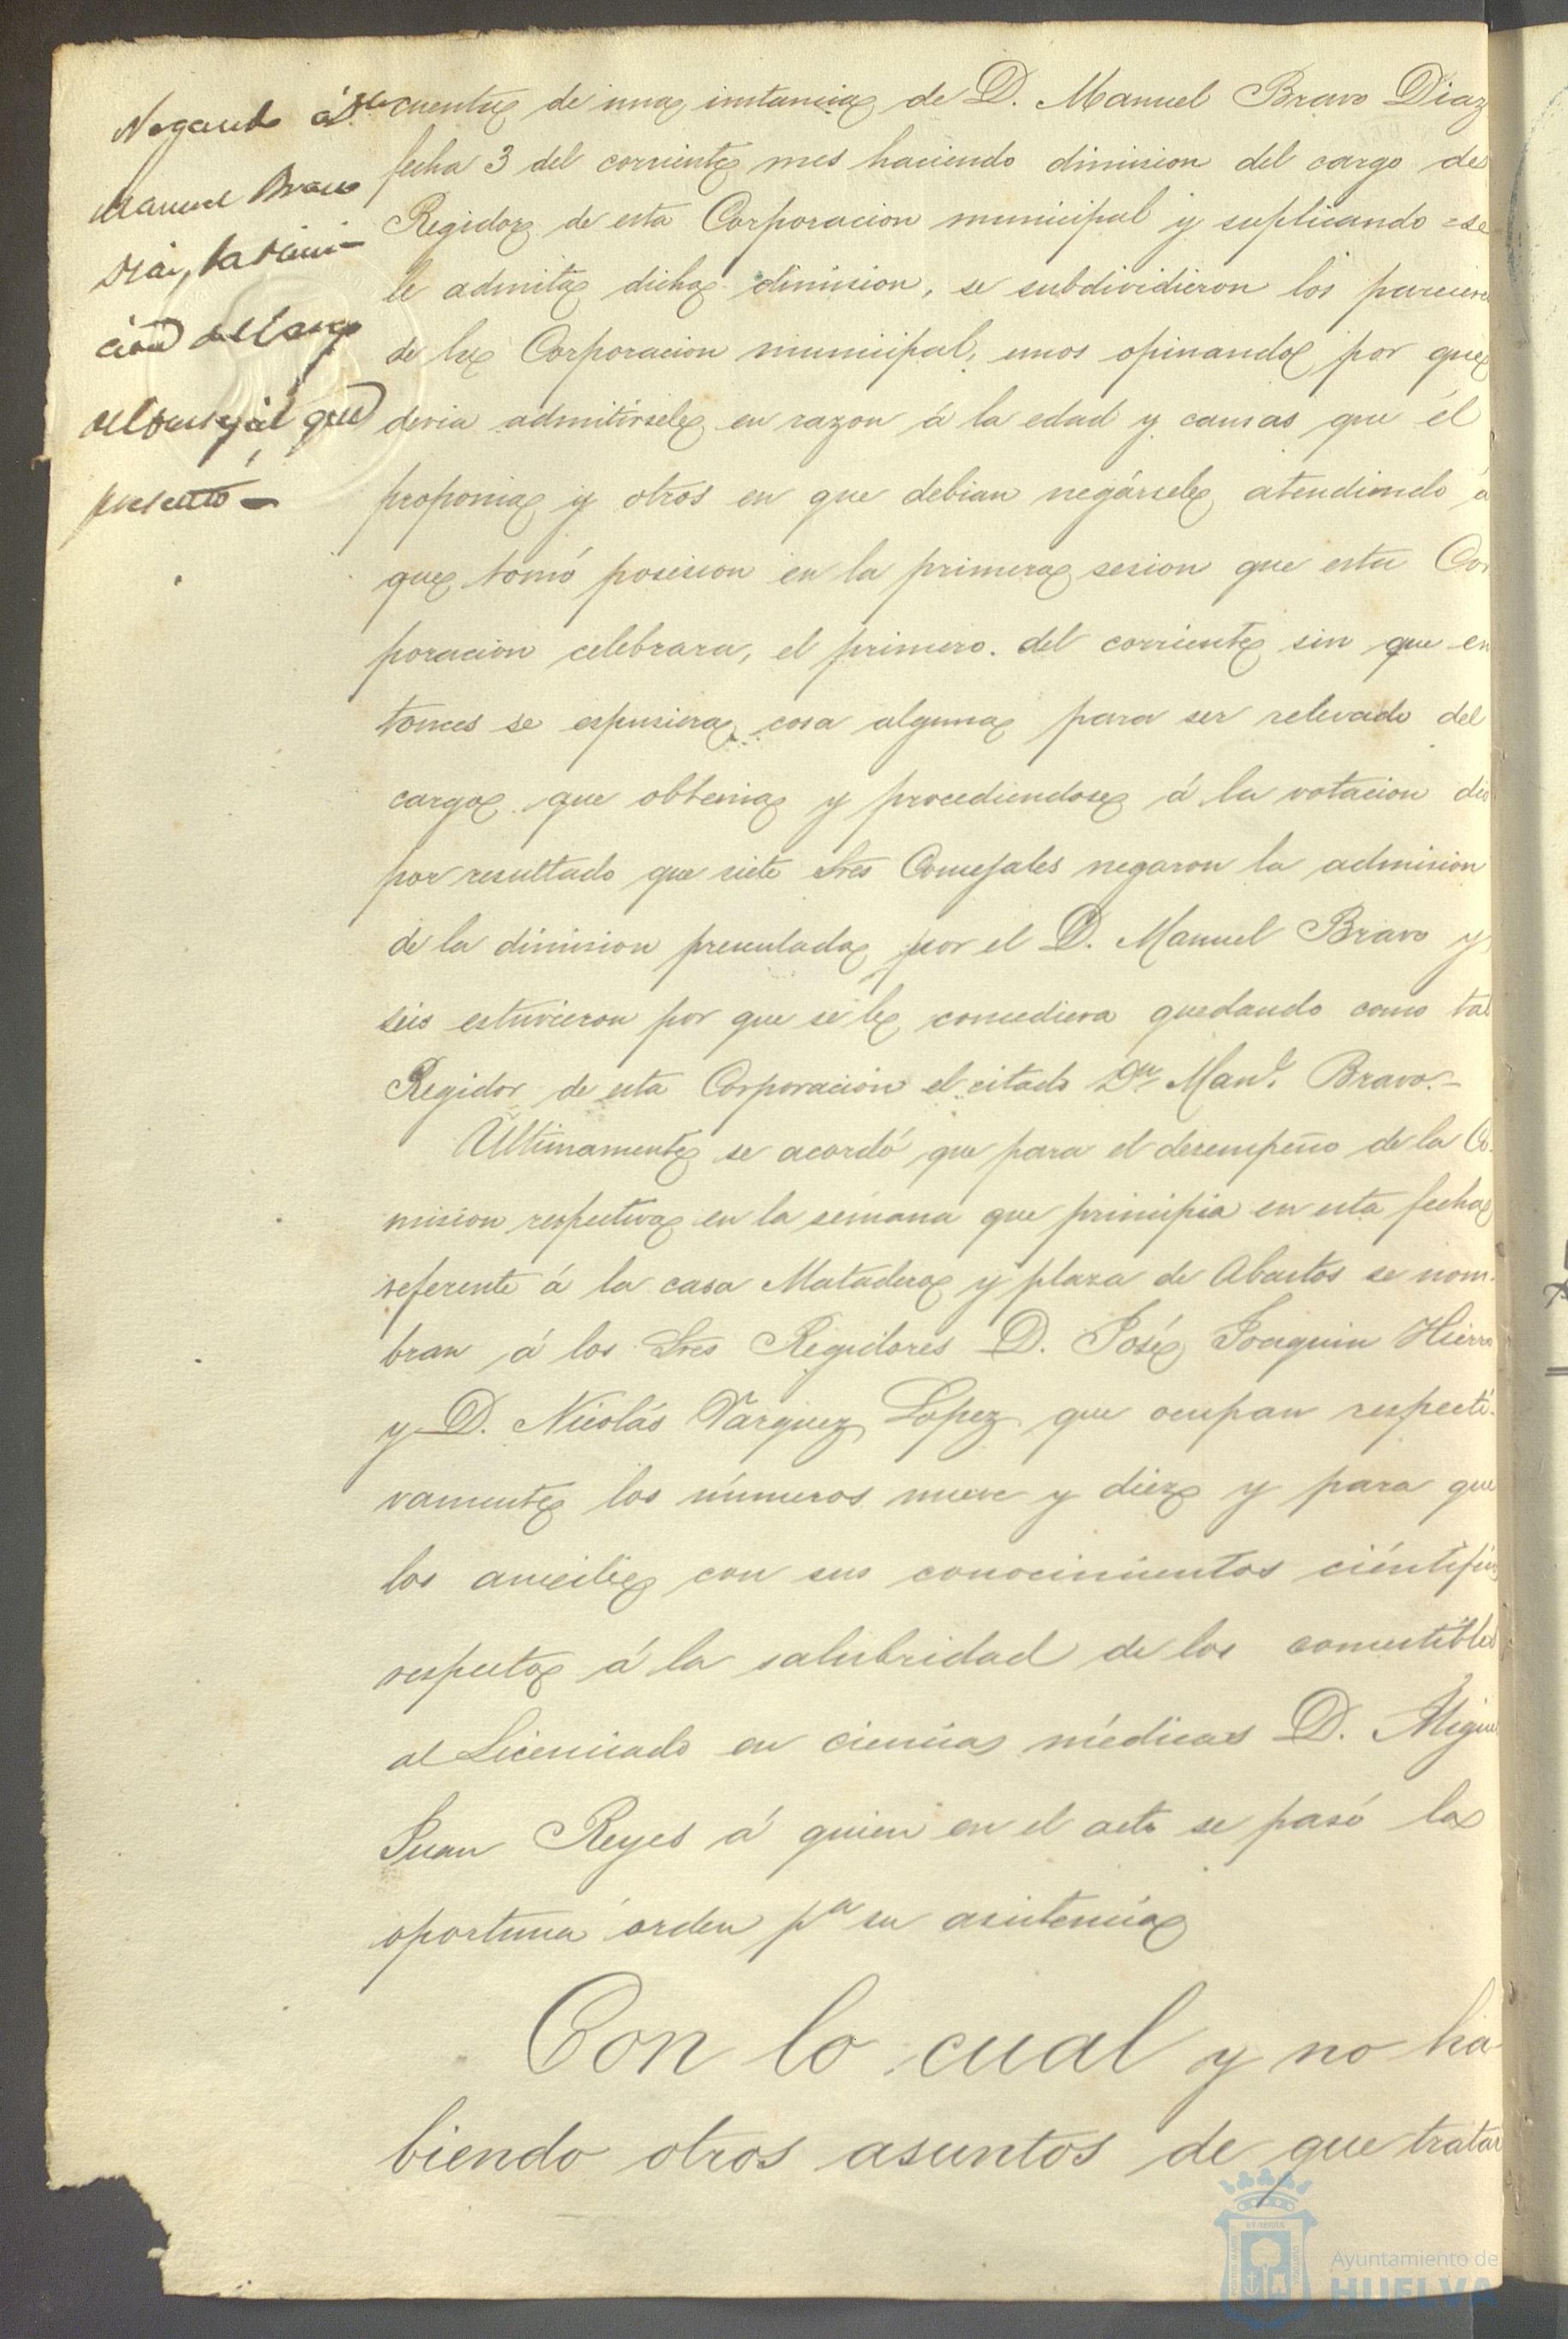 Negando á D.n
Manuel Bravo
Diaz, la dimi-
cion del cargo
del concejal que
presentó =
cuenta de una instancia de D. Manuel Bravo Diaz
fecha 3 del corriente mes haciendo dimision del cargo de
Regidor de esta Corporacion municipal y suplicando =se
le admita dicha dimision, se subdividieron los parecere
de la Corporacion municipal, unos opinando por que
deria admitírsele en razon á la edad y causas que él
proponia y otros en que debian negársele atendiendo á
que tomó posesion en la primera sesion que esta Cor
poracion celebrara, el primero. del corriente sin que en
tonces se espusiera cosa alguna para ser relevado del
cargo que obtenia y procediendose á la votacion dio
por resultado que siete Sres Concejales negaron la admision
de la dimision presentada por el D. Manuel Bravo y
seis estuvieron por que se le concediera quedando como tal
Regidor de esta Corporación el citado Dn Man.l Bravo.-
Ultimamente se acordó que para el desempeño de la Co-
mision respectiva en la semana que principia en esta fecha
referente á la casa Matadero y plaza de Abastos se nom-
bran á los Sres Regidores D. José Joaquin Hierro
y D. Nicolás Vazquez Lopez que ocupan respecti-
vamente los números nueve y diez y para que
los auxilie con sus conocimientos cientifico
respecto á la salubridad de los comestibles
al Licenciado en ciencias médicas D. Migue
Juan Reyes á quien en el acto se pasó la
oportuna orden pa su asistencia
Con lo cual y no ha-
biendo otros asuntos de que tratar
Ayuntamiento de
HUELVA